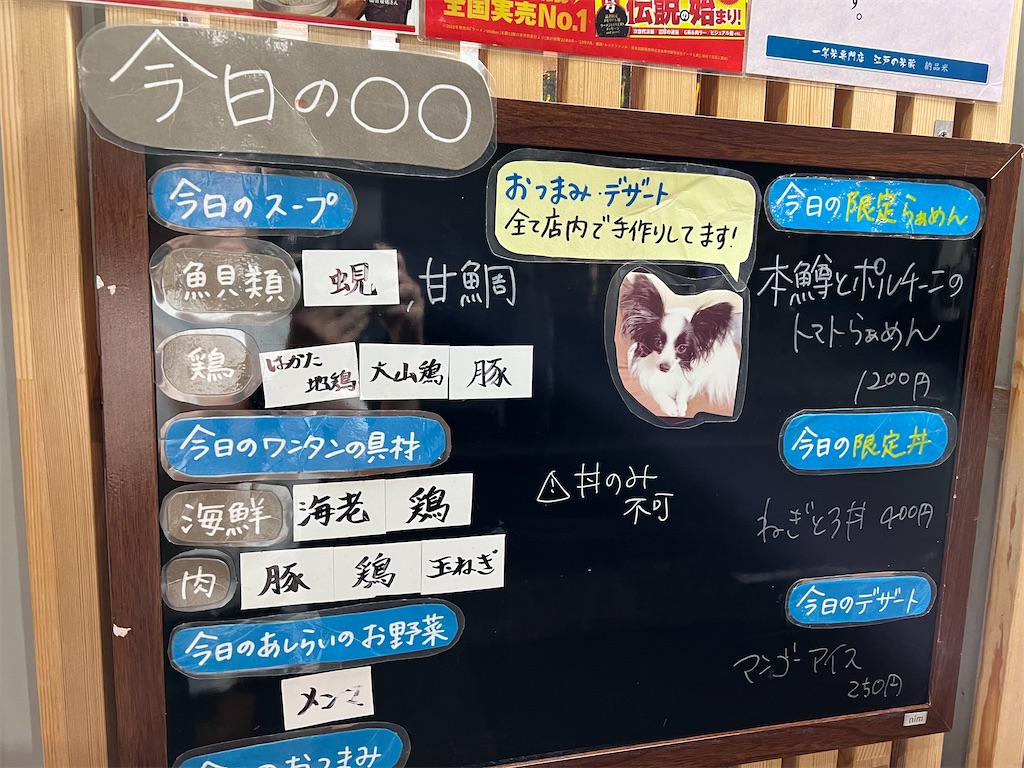 全国実売No.1
伝説の始まり!
す。
一等米専門店 江戸の米蔵 納品米
今日の〇〇
今日のスープ
魚貝類 蜆、甘鯛
鶏 はかた地鶏 大山鶏 豚
今日のワンタンの具材
海鮮 海老 鶏
肉 豚 鶏 玉ねぎ
今日のあしらいのお野菜
メンマ
今日のおつまみ
おつまみ・デザート
全て店内で手作りしてます!
⚠丼のみ
不可
今日の限定らぁめん
本鱒とポルチーニの
トマトらぁめん
1200円
今日の限定丼
ねぎとろ丼 400円
今日のデザート
マンゴーアイス
250円
nim